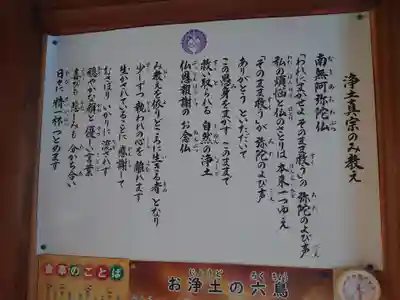 浄土真宗のみ教え
南無阿弥陀仏
「われにまかせよ そのまま救う」の 弥陀のよび声
私の煩悩と仏のさとりは 本来一つゆえ
「そのまま救う」が 弥陀のよび声
ありがとう といただいて
この愚身をまかす このままで
救い取られる 自然の浄土
仏恩報謝の お念仏
み教えを依りどころに生きる者 となり
少しずつ 執われの心を 離れます
生かされていることに 感謝して
むさぼり いかりに 流されず
穏やかな顔と 優しい言葉
喜びも 悲しみも 分かち合い
日々に 精一杯 つとめます
食事のことば
お浄土の六鳥